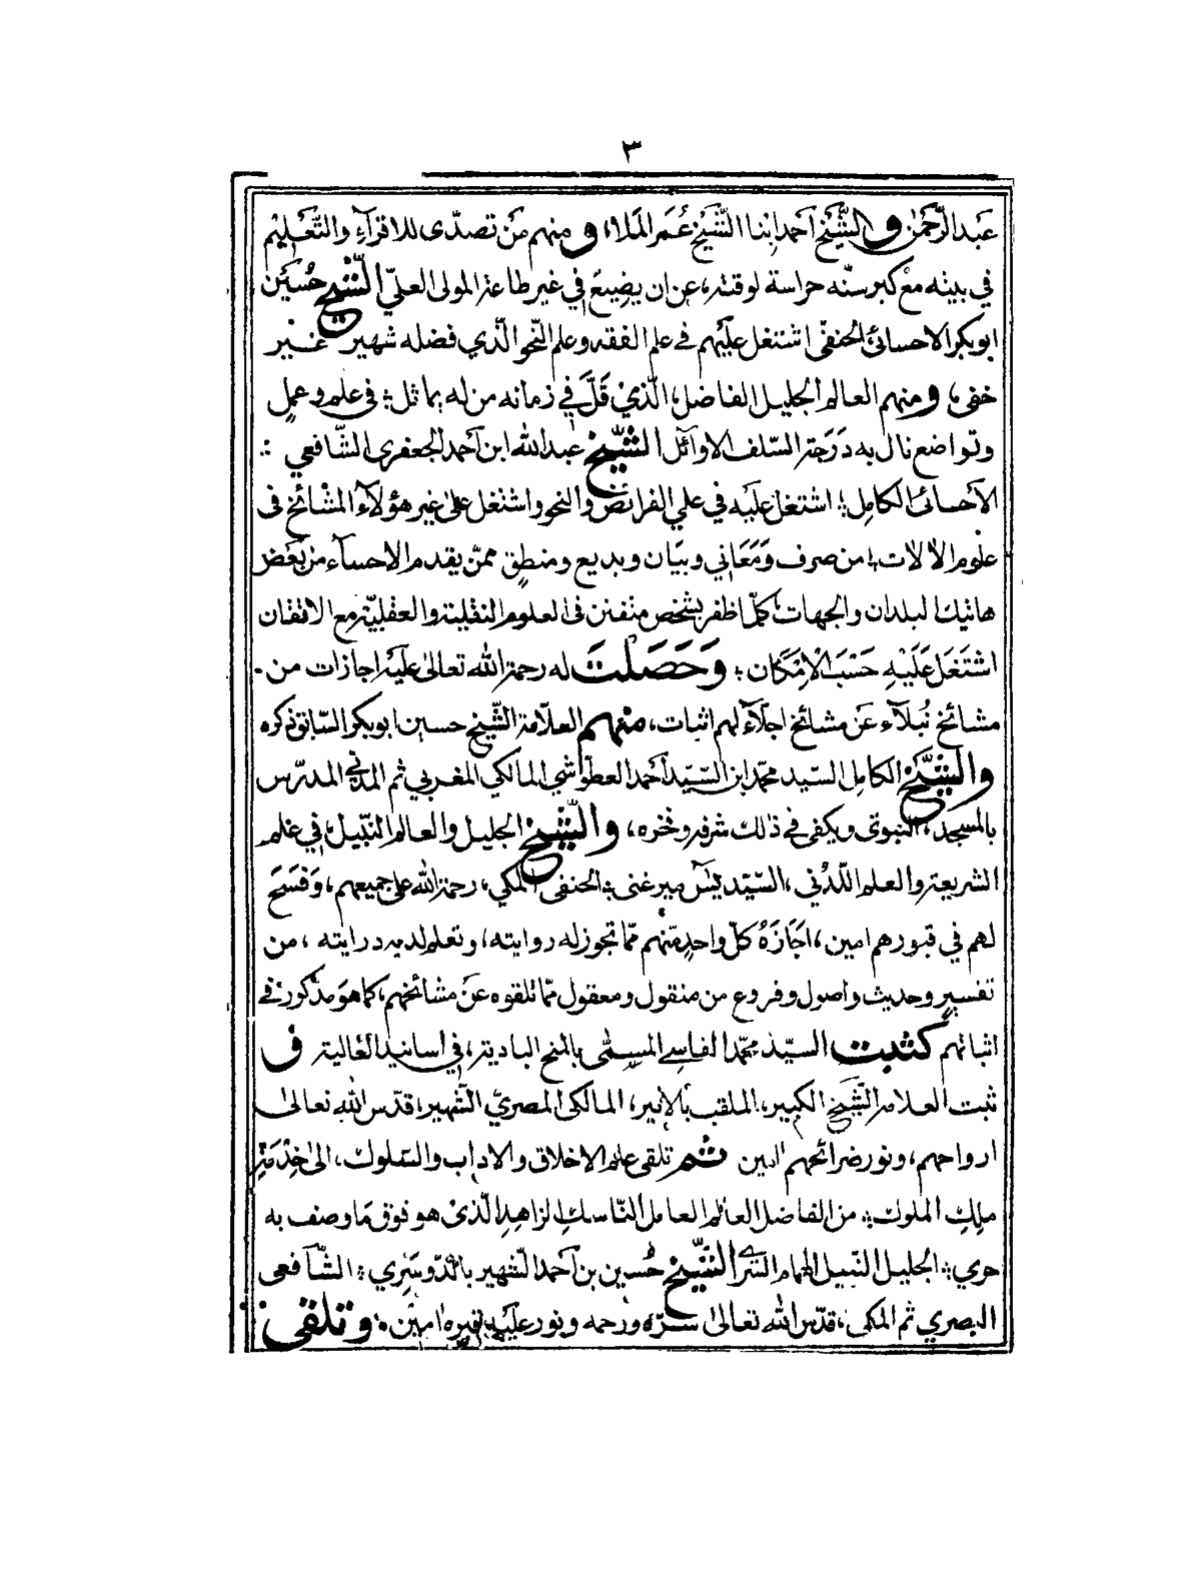 ٣
عَبد الرَّحمٰن و الشَّيْخ اَحمد اِبْنا الشَّيْخ عُمَر المَلا، و منهم مَن تصدّى للاقرآءِ والتَّعَليم
في بيته معْ كبر سنّه حراسة لوقته، عن ان يضِيعَ في غير طاعة المولى العليّ الشّيْخ حُسَيْن
ابو بكر الاحسائى الحنفى اشتغل عليْهم فے علم الفقه وعلم النّحو الّذي فضله شهير غير
خفى، و منهم العالم الجليل الفاضل، الّذيْ قَلَّ في زمانه من له يماثل؛ فى علم وعملٍ
وتواضع نال به دَرَجة السّلف الاوآئل الشّيْخ عبد الله ابن اَحمد الجعفرى الشّافعي ؞
الاَحسائى الكامِل؛ اشتغل عليْه في علمي الفرائض والنحو واشتغل على غير هؤلآءِ المشائخ فى
علوم الاٰلات، من صرف وَمَعَاني وبيَان وبديع ومنطقٍ ممّن يقدم الاحسآء من بَعْض
هاتيك البلدان والجهات كلمّا ظفر بشخص متفنن فى العلوم النقلية والعقليّة مع الاتقان
اشتَغَل عَلَيْهِ حَسْبَ الْاِمْكَان؛ وَحَصَلتَ له رحمة الله تعالى عليْه اجازات من
مشائخ نُبلآء عَن مشائخ اجلّآء لهم اثبات، منهم العلاّمة الشّيخ حسين ابو بكر السّابق ذكره
والشّيَخ الكامِل السّيد محمّد ابن السّيّد اَحمد العطواشي المالكي المغربي ثم المدني المدرّس
بالمسجد، النبوىّ ويكفى فے ذالك شرفه وفخره، والشّيْخ الجليل والعالم النّبيل في علم
الشريعة والعلم اللّدُني، السّيّد يٰسٓ ميرغنى؛ الحنفى المكي، رحمة الله على جميعهم، وَفسَحَ
لهم في قبورهم امين، اَجَازَهُ كلّ واحدٍ مّنهم ممّا تجوز له روايته، وتعلم لديه درايته، من
تفسيرٍ وحديث واصول وفروع من منقول ومعقول ممّا تلقوه عنَ مشائخهم، كما هوَ مذكور فے
اثباتهم كثبت السيّد محمّد الفاسے المسمّى بالمنح البادية، في اسانيد العَالية و
ثبت العلامة الشّيَخ الكبير، الملقب بالاَمير، المالكى المصريّ الشّهير، قدّس الله تعالى
ارواحهم، ونور ضرائحهم اٰمين ثم تلقى علم الاخلاق والاداب والسّلوك، الىٰ خِدْمَةِ
ملِكِ الملوك؛ من الفاضل العَالم العامل النّاسكِ الزاهِدِ الّذىْ هو فوق مَا وصف به
حري؛ الجليل النّبيل الهمام السّري الشّيْخ حُسين بن اَحمد الشّهير بالدّوسَرِي؛ الشّافعى
البصري ثم المكى، قدّس الله تعالىٰ سرّه ورحمه ونور عليْه قبره امين؛ وتلقى